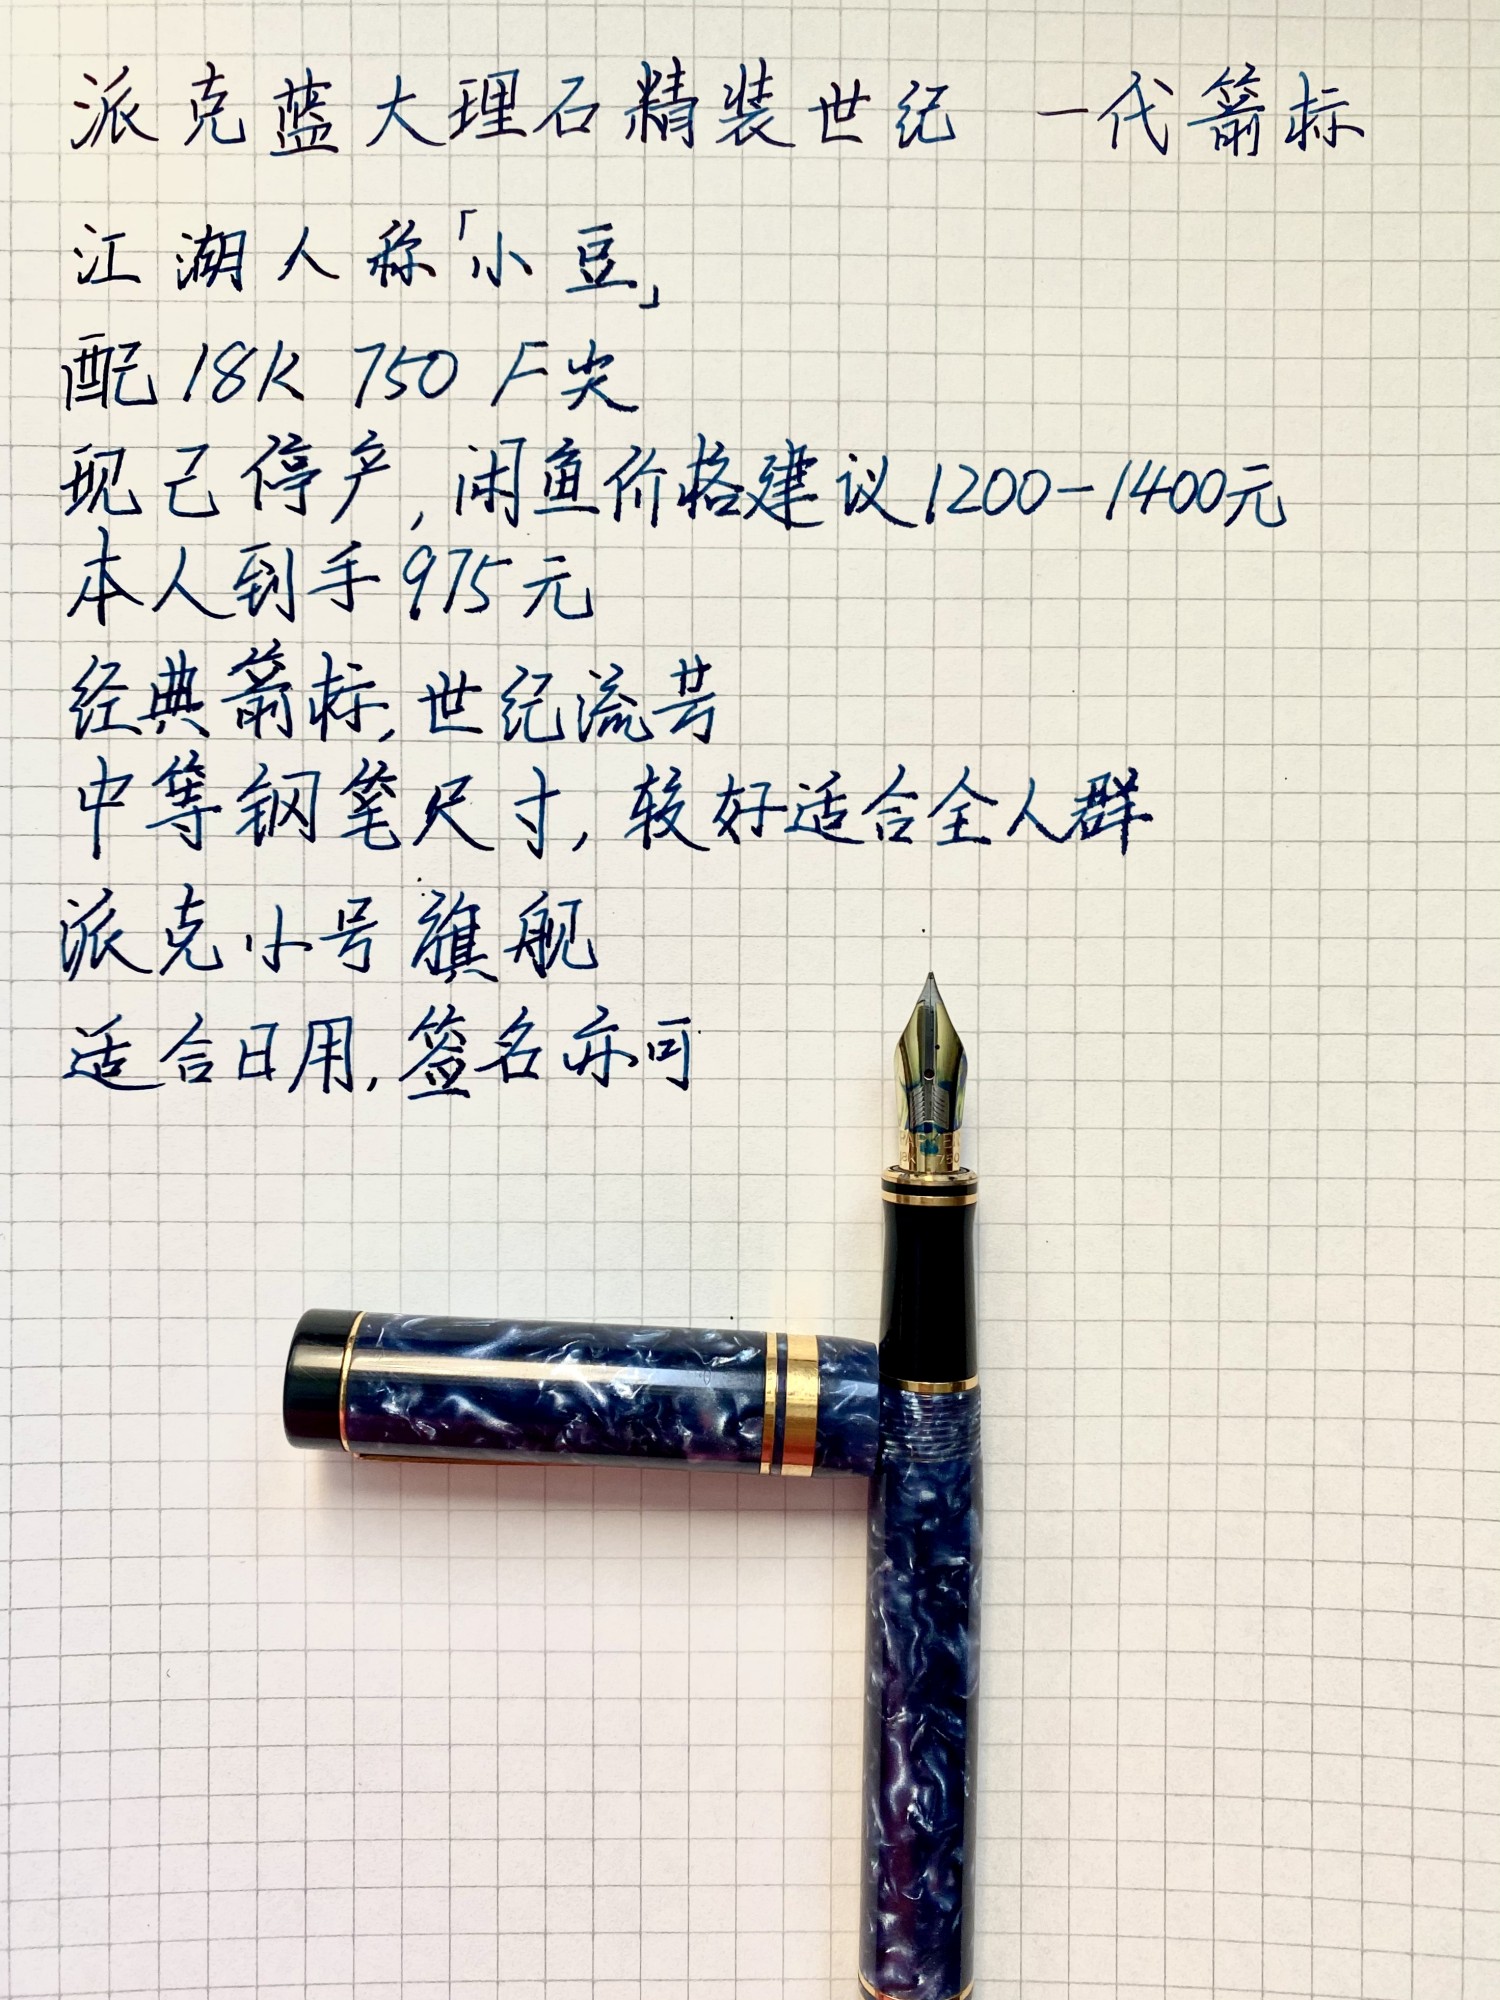 派克蓝大理石精装世纪 一代箭标
江湖人称「小豆」
配18K 750 F尖
现已停产,闲鱼价格建议1200-1400元
本人到手975元
经典箭标,世纪流芳
中等钢笔尺寸,较好适合全人群
派克小号旗舰
适合日用,签名亦可
18K 750